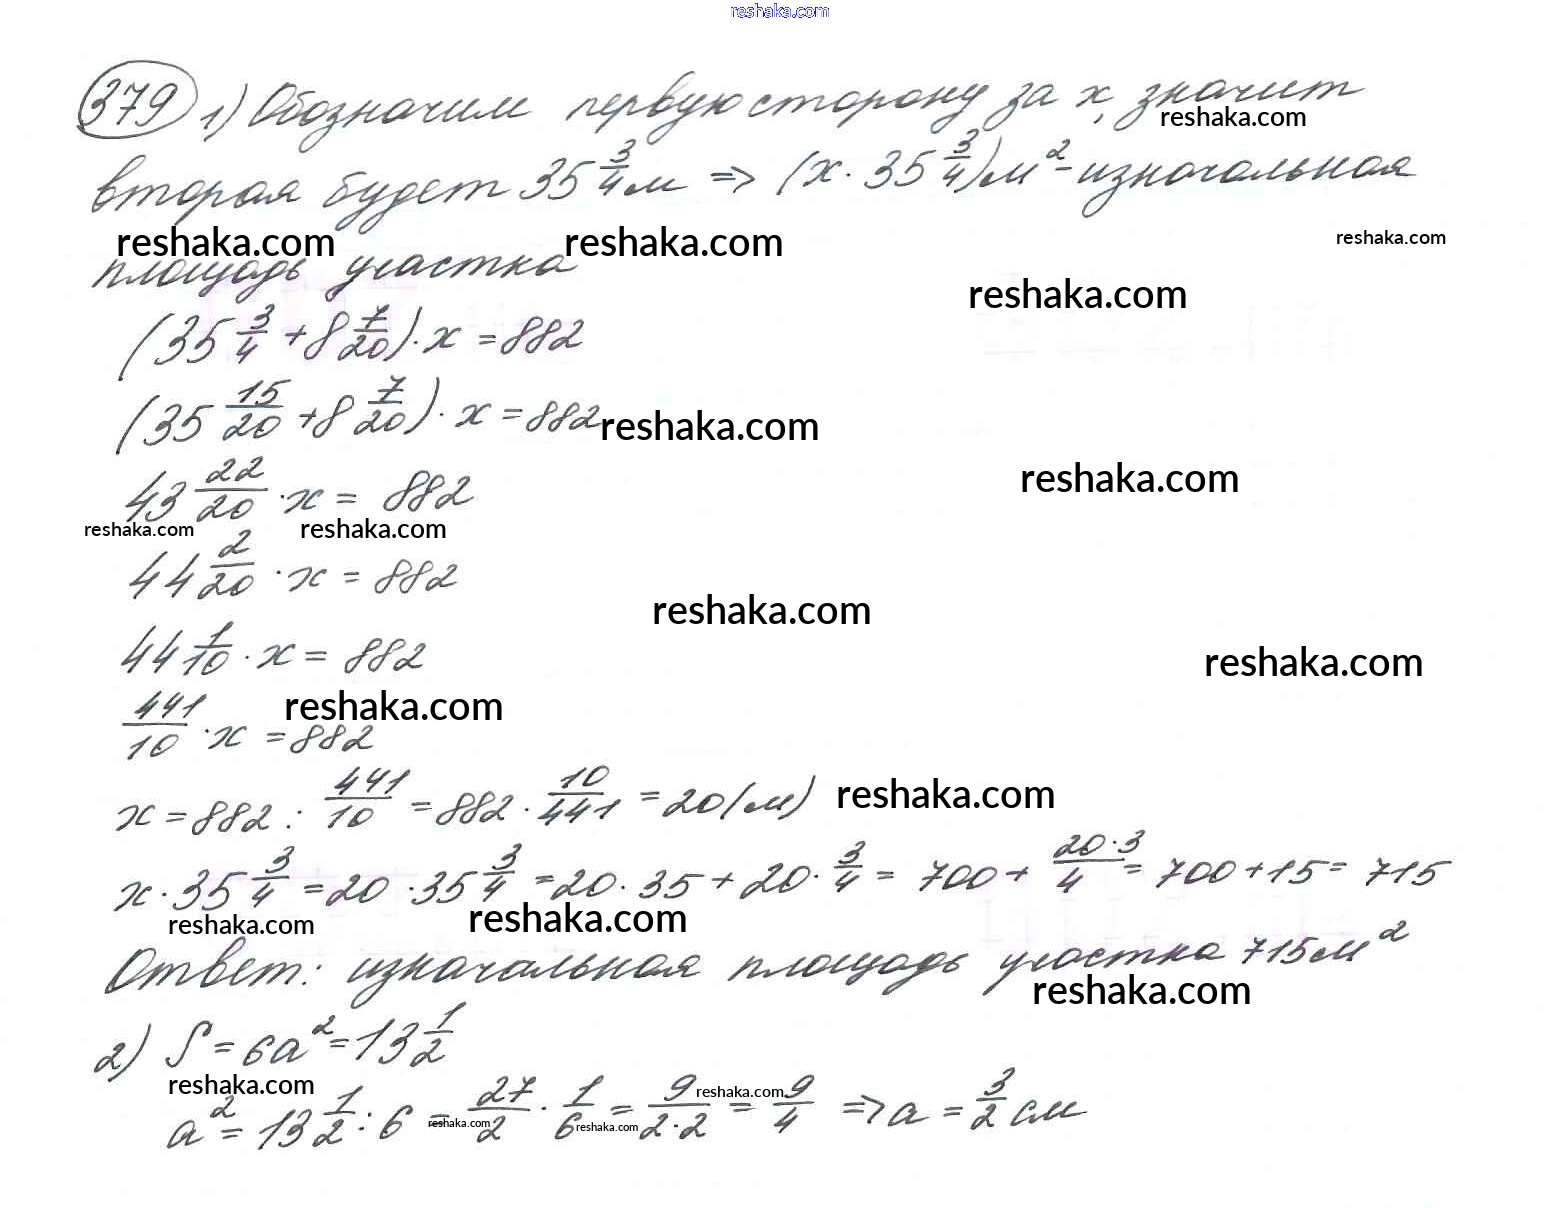 reshaka.com
379 1) Обозначим первую сторону за x, значит
reshaka.com
вторая будет 35 3/4 м => (x · 35 3/4) м² - изначальная
reshaka.com reshaka.com reshaka.com
площадь участка
reshaka.com
(35 3/4 + 8 7/20) · x = 882
(35 15/20 + 8 7/20) · x = 882 reshaka.com
43 22/20 · x = 882 reshaka.com
reshaka.com reshaka.com
44 2/20 · x = 882
reshaka.com
44 1/10 · x = 882 reshaka.com
441/10 · x = 882 reshaka.com
x = 882 : 441/10 = 882 · 10/441 = 20 (м) reshaka.com
x · 35 3/4 = 20 · 35 3/4 = 20 · 35 + 20 · 3/4 = 700 + 20·3/4 = 700 + 15 = 715
reshaka.com reshaka.com
Ответ: изначальная площадь участка 715 м²
reshaka.com
2) S = 6a² = 13 1/2
reshaka.com reshaka.com
a² = 13 1/2 : 6 = 27/2 · 1/6 = 9/2·2 = 9/4 => a = 3/2 см
reshaka.com reshaka.com